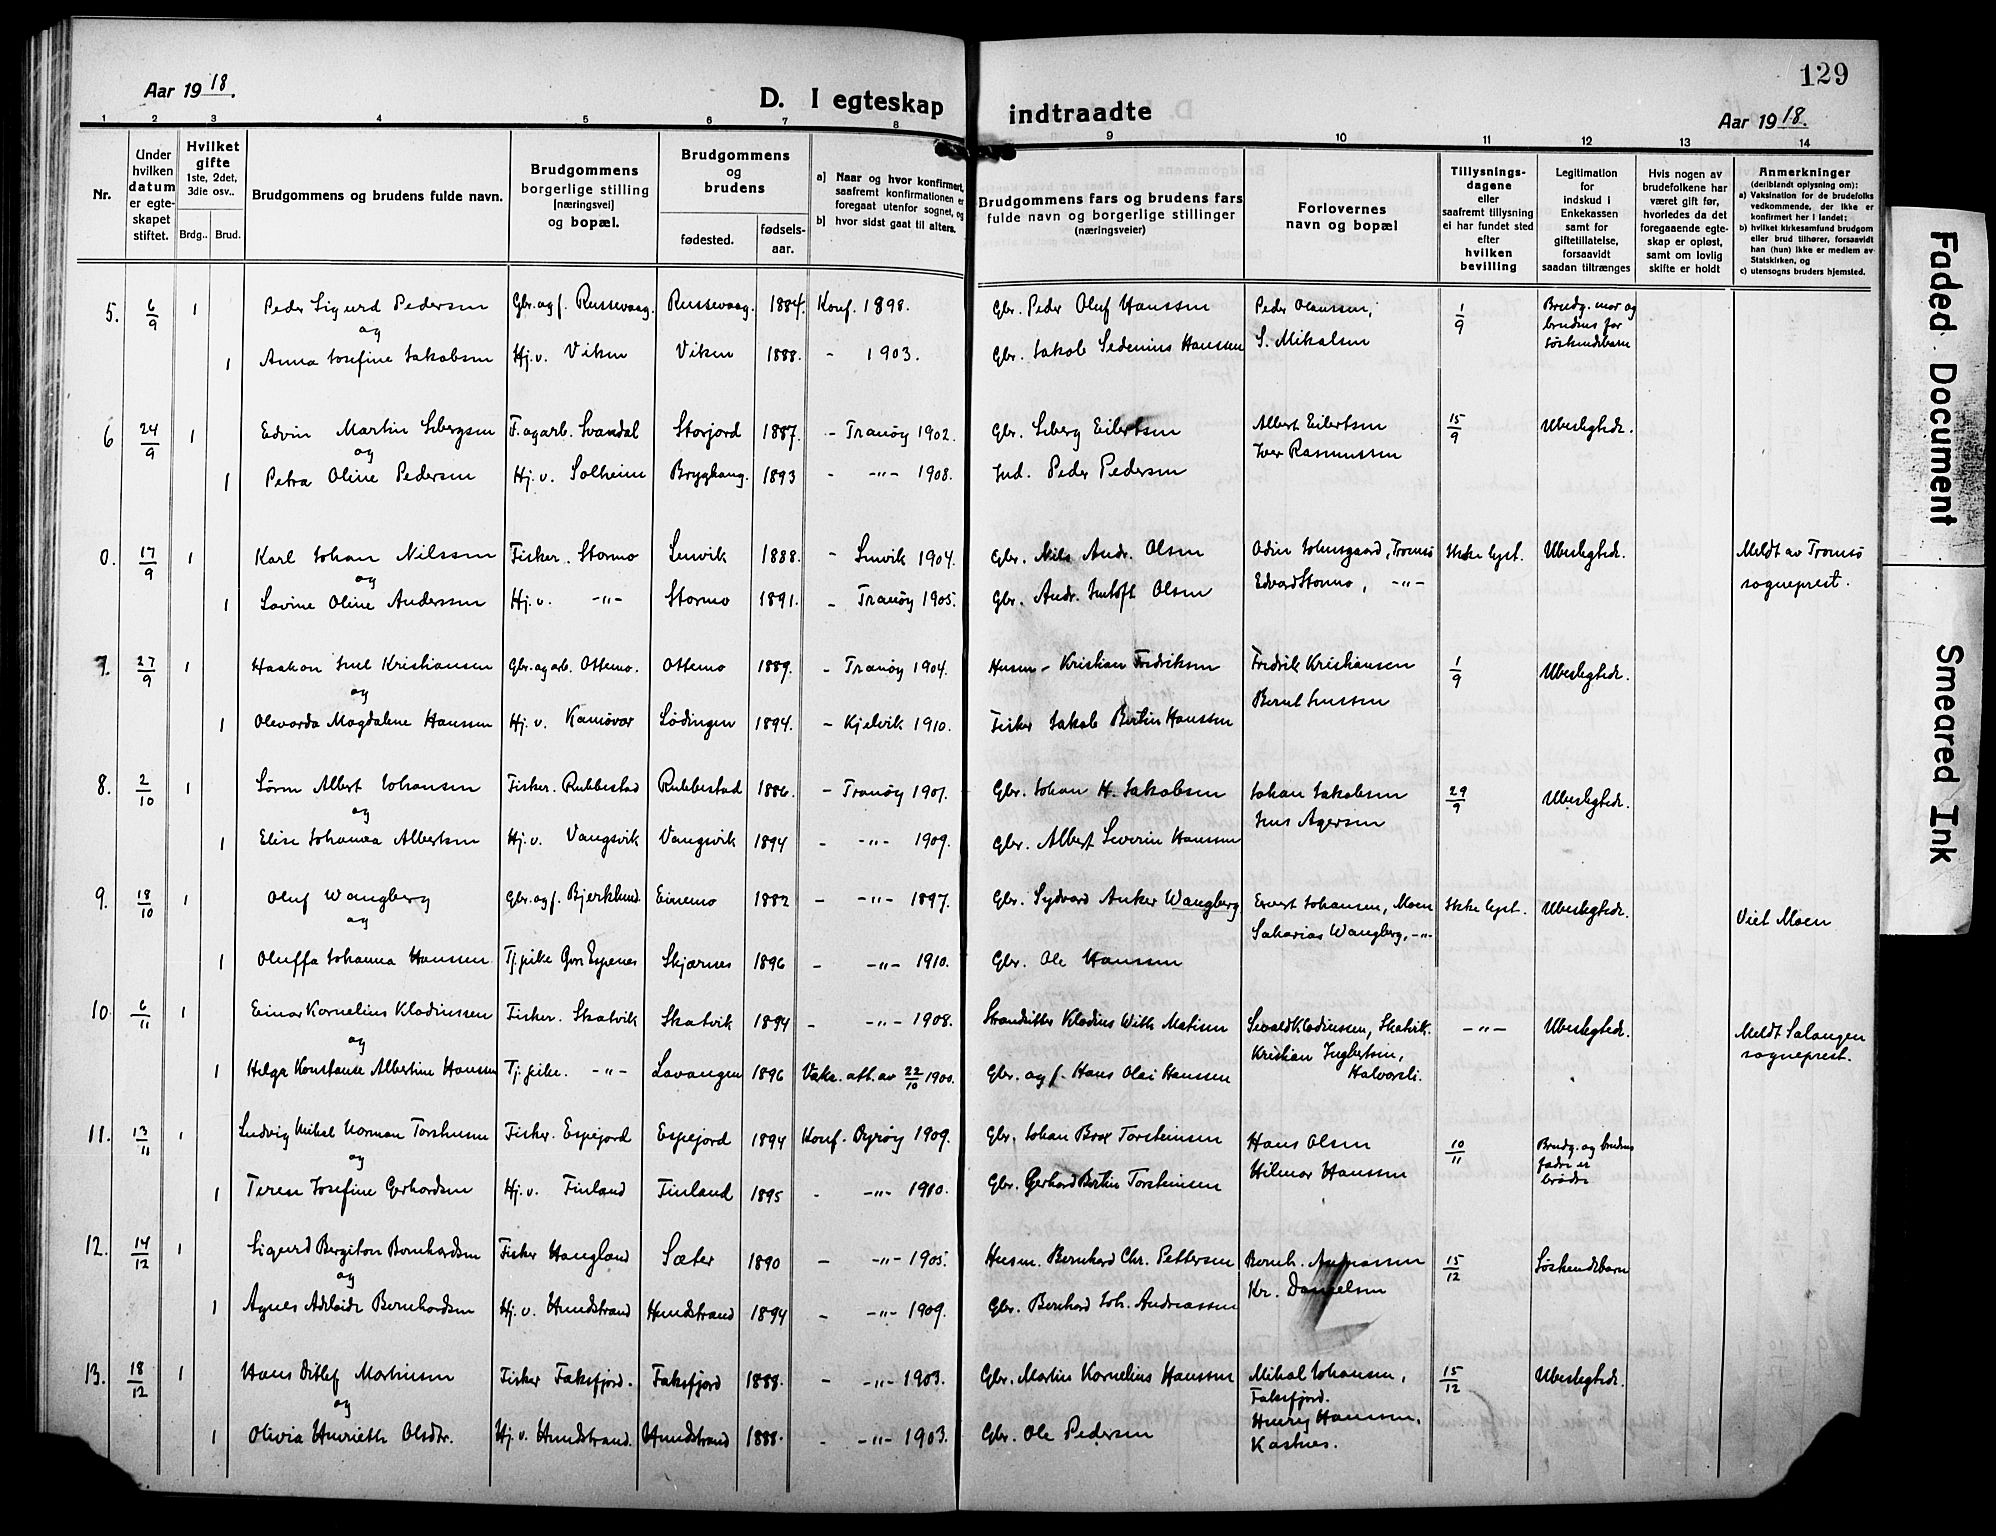 Aar 1918.
D. I egteskap
indtraadte
129
Aar 1918.
1 2 3 4 5 6 7 8 9 10 11 12 13 14
Nr.
Under hvilken datum er egteskapet stiftet.
Hvilket gifte 1ste, 2det, 3die osv..
Brdg..
Brud.
Brudgommens og brudens fulde navn.
Brudgommens borgerlige stilling [næringsvei] og bopæl.
Brudgommens og brudens
fødested.
fødsels-aar.
a] Naar og hvor konfirmert, saafremt konfirmationen er foregaat utenfor sognet, og
b] hvor sidst gaat til alters.
Brudgommens fars og brudens fars fulde navn og borgerlige stillinger (næringsveier)
Forlovernes navn og bopæl
Tillysnings-dagene eller saafremt tillysning ei har fundet sted efter hvilken bevilling
Legitimation for indskud i Enkekassen samt for giftetillatelse, forsaavidt saadan tiltrænges
Hvis nogen av brudefolkene har været gift før, hvorledes da det foregaaende egteskap er opløst, samt om lovlig skifte er holdt
Anmerkninger (deriblandt oplysning om): a) Vaksination for de brudefolks vedkommende, der ikke er konfirmert her i landet; b) hvilket kirkesamfund brudgom eller brud tilhører, forsaavidt han (hun) ikke er medlem av Statskirken, og c) utensogns bruders hjemsted.
5. 6/9 1 Peder Sigurd Pedersen Gbr. og f. Russevaag. Russevaag. 1884. Konf. 1898. Gbr. Peder Oluf Hanssen Peder Olaussen, 1/9 Brudg. mor og brudens far søskendebarn
og
1 Anna Josefine Jakobsen Hj. v. Viken Viken 1888. - 1903. Gbr. Jakob Sedenius Hanssen S. Mikalsen
6 24/9 1 Edvin Martin Sebergsen F. og arb. Svandal Storjord 1887. - Tranøy 1902. Gbr. Seberg Eilertsen Albert Eilertsen 15/9 Ubeslegtede.
og
Iver Rasmussen
1 Petra Oline Pedersen Hj. v. Solheim Bryghaug. 1893 - -"- 1908. Ind. Peder Pedersen
0. 17/9 1 Karl Johan Nilssen Fisker. Stormo Lenvik 1888. - Lenvik 1904. Gbr. Nils Andr. Olsen Odin Johnsgaard, Tromsø Ikke lyst. Ubeslegtede. Meldt av Tromsø sogneprest.
og
1 Lovine Oline Anderssen Hj. v. -"- Stormo 1891. - Tranøy 1905. Gbr. Andr. Jentoft Olsen Edvard Stormo, -"-
7. 27/9 1 Haakon Emil Kristiansen Gbr. og arb. Ottemo. Ottemo 1889. - Tranøy 1904. Husm. - Kristian Fredriksen Fredrik Kristiansen 1/9 Ubeslegtede.
og
Bernt Jenssen
1 Olevarda Magdalene Hanssen Hj. v. Kamøvær Lødingen 1894. - Kjelvik 1910. Fisker Jakob Bertin Hanssen
8. 2/10 1 Søren Albert Johansen Fisker. Rubbestad Rubbestad 1886. - Tranøy 1901. Gbr. Johan H. Jakobsen Johan Jakobsen 29/9 Ubeslegtede.
og
Jens Agersen
1 Elise Johanna Albertsen Hj. v. Vangsvik Vangsvik 1894 - -"- 1909. Gbr. Albert Severin Hanssen
9. 18/10 1 Oluf Wangberg Gbr. og f. Bjerklund. Einemo 1882 - -"- 1897. Gbr. Sydvard Anker Wangberg. Evert Johansen, Moen Ikke lyst. Ubeslegtede. Viet Moen
og
Sakarias Wangberg, -"-
1 Oluffa Johanna Hanssen Tj. pike Espenes Skjærnes 1896 - -"- 1910. Gbr. Ole Hanssen
10 6/11 1 Einar Kornelius Kladiussen Fisker. Skatvik Skatvik 1894 - -"- 1908. Strandsitter Kladius With Matisen Sevald Kladiussen, Skatvik. -"- Ubeslegtede. Meldt Salangen sogneprest.
og
Kristian Ingbertsen, Halvorsli.
1 Helga Konstanse Albertine Hanssen Tj. pike. -"- Lavangen 1896 Vakc. att. av 22/10 1900. Gbr. og f. Hans Olai Hanssen
11. 13/11 1 Ludvig Mikal Norman Torsteinsen Fisker. Espejord Espejord 1894 Konf. Dyrøy 1909. Gbr. Johan Brox Torsteinsen Hans Olsen 10/11 Brudg. og brudens fædre er brødre
og
Hilmar Hanssen
1 Terese Josefine Gerhardsen Hj. v. Finland Finland 1895 - -"- 1910. Gbr. Gerhard Bertin Torsteinsen
12. 14/12 1 Sigurd Bergiton Bernhardsen Fisker Haugland Sæter 1890 - -"- 1905. Husm. Bernhard Chr. Pettersen Bernh. Andreassen 15/12 Søskendebarn
og
Kr. Danielsen
1 Agnes Adelaide Bernhardsen Hj. v. Hundstrand Hundstrand 1894 - -"- 1909. Gbr. Bernhard Joh. Andreassen
13. 18/12 1 Hans Ditlef Martinsen Fisker Faksfjord. Faksfjord 1888. - -"- 1903. Gbr. Martin Kornelius Hanssen Mikal Johansen, Faksfjord. 15/12 Ubeslegtede.
og
Henry Hanssen, Kastnes.
1 Olivia Henriette Olsdtr. Hj. v. Hundstrand. Hundstrand 1888. - -"- 1903. Gbr. Ole Pedersen
Faded Document
Smeared Ink